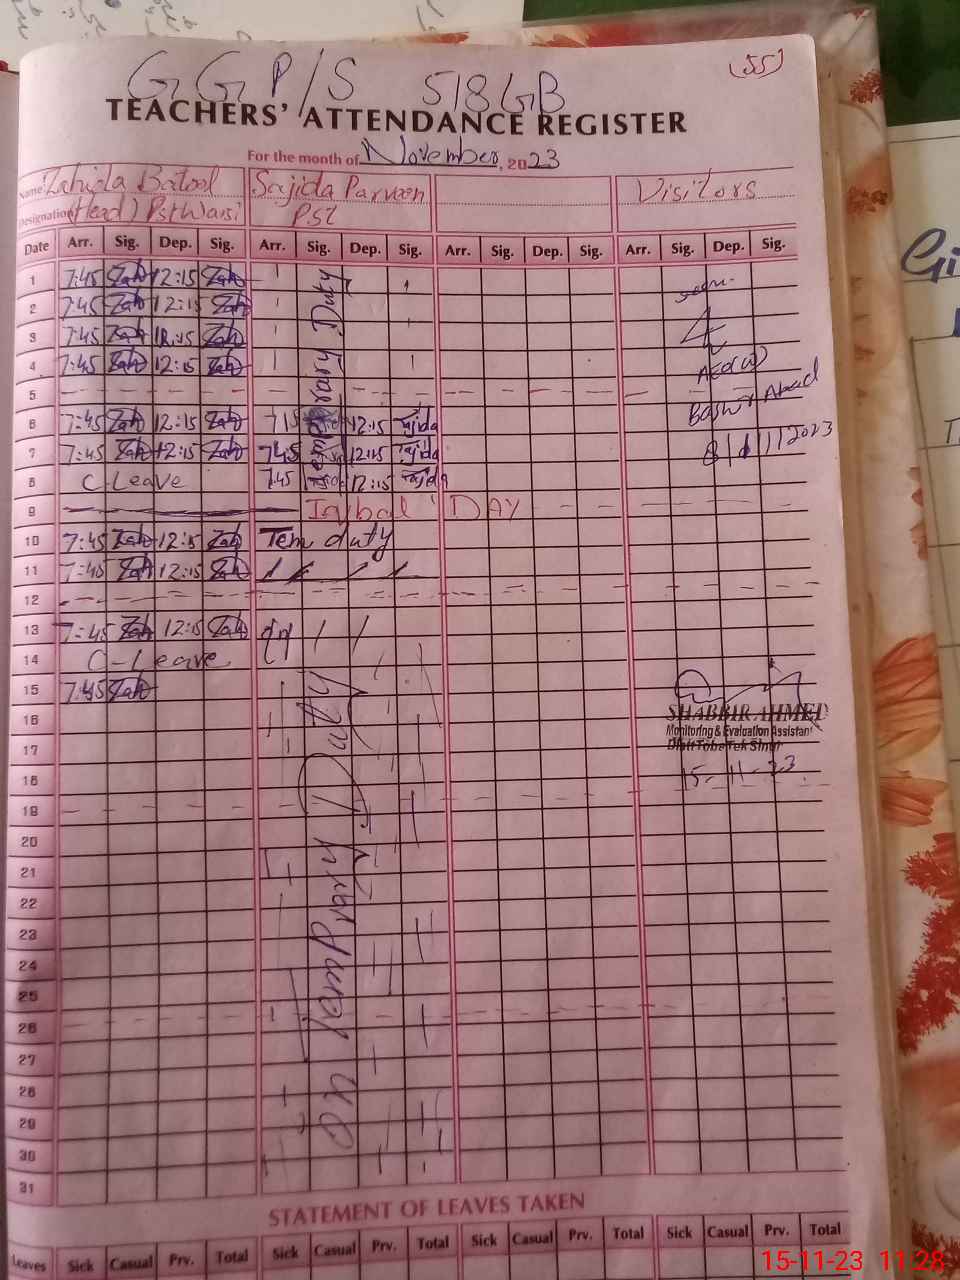 G G P/S 518 GB
(55)
TEACHERS' ATTENDANCE REGISTER
For the month of November, 2023
Name Zahida Batool Sajida Parveen Visitors
Designation (Head) Pst P.st
Date Arr. Sig. Dep. Sig. Arr. Sig. Dep. Sig. Arr. Sig. Dep. Sig. Arr. Sig. Dep. Sig.
1 7:45 Zah 12:15 Zah
2 7:45 Zah 12:15 Zah
3 7:45 Zah 12:15 Zah
4 7:45 Zah 12:15 Zah
Duty
5
6 7:45 Zah 12:15 Zah 7:45 12:15 Sajida
7 7:45 Zah 12:15 Zah 7:45 12:15 Sajida
8 C Leave 7:45 12:15 Sajida
AEO(W)
8/11/2023
9 Iqbal DAY
10 7:45 Zah 12:15 Zah Tem duty
11 7:45 Zah 12:15 Zah
12
13 7:45 Zah 12:15 Zah
14 C-Leave
15 7:45 Zah
16
17
18
19
20
21
22
23
24
25
26
27
28
29
30
31
SHABBIR AHMED
Monitoring & Evaluation Assistant
Distt Toba Tek Singh
15-11-23
STATEMENT OF LEAVES TAKEN
Leaves Sick Casual Prv. Total Sick Casual Prv. Total Sick Casual Prv. Total Sick Casual Prv. Total
15-11-23 11:28